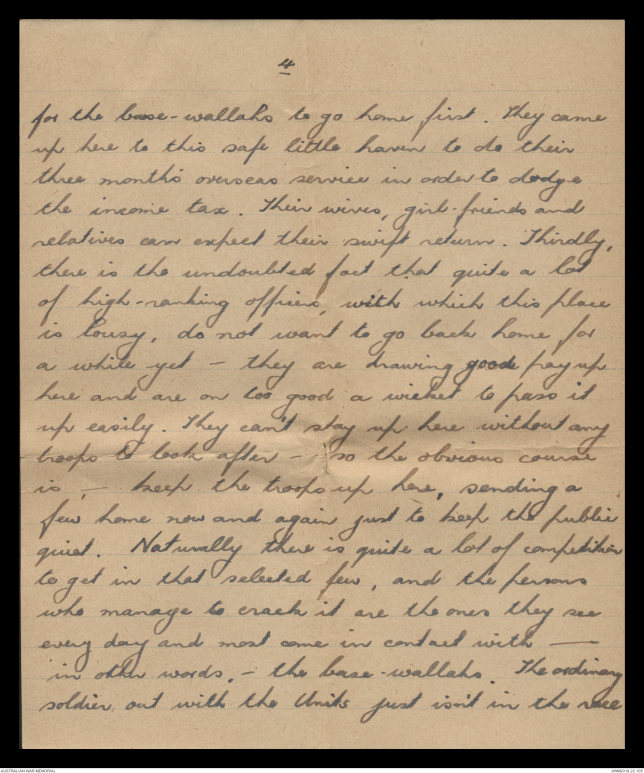 4
for the base-wallahs to go home first. They came
up here to this safe little haven to do their
three months overseas service in order to dodge
the income tax. Their wives, girl-friends and
relatives can expect their swift return. Thirdly,
there is the undoubted fact that quite a lot
of high-ranking officers, with which this place
is lousy, do not want to go back home for
a while yet – they are drawing good pay up
here and are on too good a wicket to pass it
up easily. They can't stay up here without any
troops to look after – so the obvious course
is, – keep the troops up here, sending a
few home now and again just to keep the public
quiet. Naturally there is quite a lot of competition
to get in that selected few, and the persons
who manage to crack it are the ones they see
every day and most come in contact with —
in other words, – the base-wallahs. The ordinary
soldier out with the Units just isn't in the race
AUSTRALIAN WAR MEMORIAL